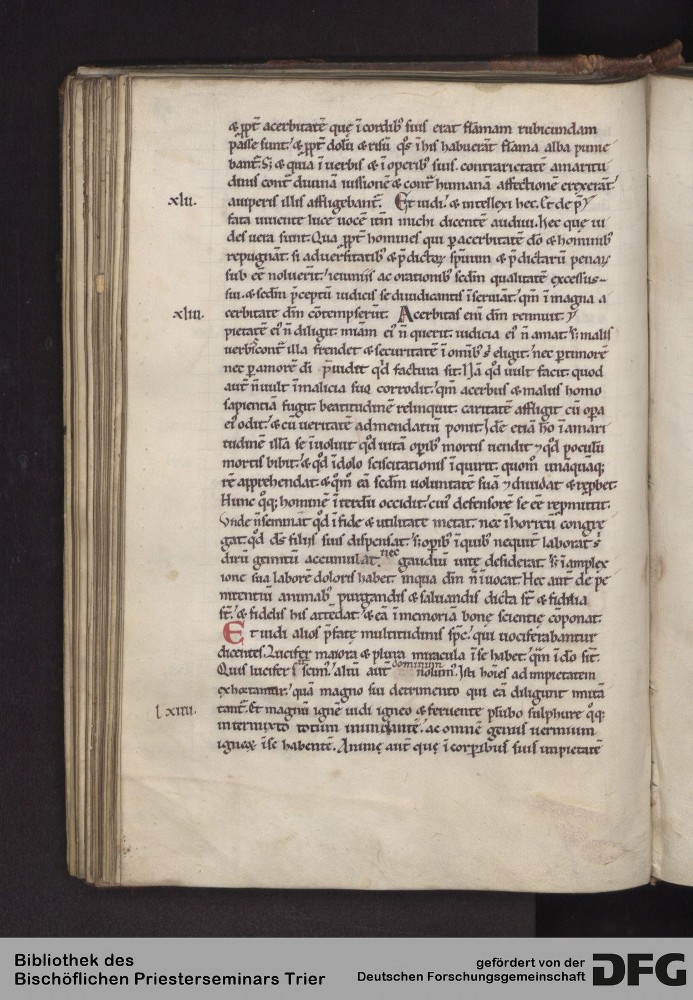 & ꝓpt̄ acerbitatē quę ī cordib; suis erat flāmam rubicundam
passe sunt. & ꝓpt̄ dolū & risū qͦs ī his habuerāt flama alba punie
bant̄. S; & quia ī uerbis & ī operib; suis contrarietatē amaritu
dinis cont̄ diuinā iussionē & cont̄ humanā affectionē erexerāt
a uiperis illis affligebant̄. Et uidi. & intellexi hec. Et de
xlii.
fata uiuente luce uocē itm̄ michi dicentē audiui. Hec que ui
des uera sunt. Qua ꝓpt̄ homines qui ꝑ acerbitatē dō & hominib;
repugnāt. si aduersitatib; & p̄dictoꝝ spirituum & p̄dictarū penaꝝ
sub eē noluerīt. ieiuniis ac orationib; scdm̄ qualitatē excessus
sui. & scdm̄ p̄ceptū iudicis se diiudicantis īseruiāt. qm̄ ī magna a
cerbitate dm̄ cōtempserūt. Acerbitas eni dm̄ rennuit.
xliii.
pietatē ei n̄ diligit. miām ei n̄ querit. iudicia ei n̄ amat. s; malis
uerbis cont̄ illa frendet & securitatē ī omīb; s̄ eligit. nec ꝑ timorē
nec ꝑ amorē dī p̄uidit qd̄ factura sit. Nā qd̄ uult facit. quod
aut̄ n̄ uult ī malicia sua corrodit. qm̄ acerbus & malus homo
sapientiā fugit. beatitudinē relinquit. caritatē affligit cū opa
ei odit. & cū ueritatē ad mendatiū ponit. Idē etiā hō ī amari
tudinē illā se īuoluit qd̄ uitā opib; mortis uendit ⁊ qd̄ poculū
mortis bibit. & qd̄ ī dolo sciscitationis īquirit. quom̄ unāquaq;
rē apprehendat. & qm̄ eā scdm̄ uoluntatē suā ⁊ diuidat & rephet.
Hunc qͦq; hominē īterdū occidit. cui defensorē se eē repmittit.
Vnde n̄ seminat qd̄ ī fide & utilitate metat. nec ī horreū congre
gat. qd̄ ds̄ filiis suis dispensat. s; opib; ī quib; nequit̄ laborat
dirū gemitū accumulat. nec gaudiū uite desiderat. s; ī amplex
ione sua laborē doloris habet. in qua dm̄ n̄ īuocat. Hec aut̄ de pe
nitentiū animab; purgandis & saluandis dicta st̄ & fidelia
st̄. & fidelis his attēdat. & eā ī memoriā bonę scientię cōponat.
Et uidi alios p̄fatę multitudinis spc̄. qui uociferabantur
dicentes. Lucifer maiora & plura miracula ī se habet. qm̄ ī dō sit.
Quis lucifer scim. aliū aut̄ dominum nolum. Isti hoīes ad impietatem
exhortantur. quā magno sui detrimento qui eā diligunt imitā
tant̄. Et magnū ignē uidi igneo & feruente plūbo sulphure qͦq;
lxiiii.
intermixto totum inundantē. ac omnē genus uermium
igneoꝝ ī se habentē. Animę aut̄ quę ī corporibus suis impietatē
Bibliothek des
Bischöflichen Priesterseminars Trier
gefördert von der
Deutschen Forschungsgemeinschaft
DFG